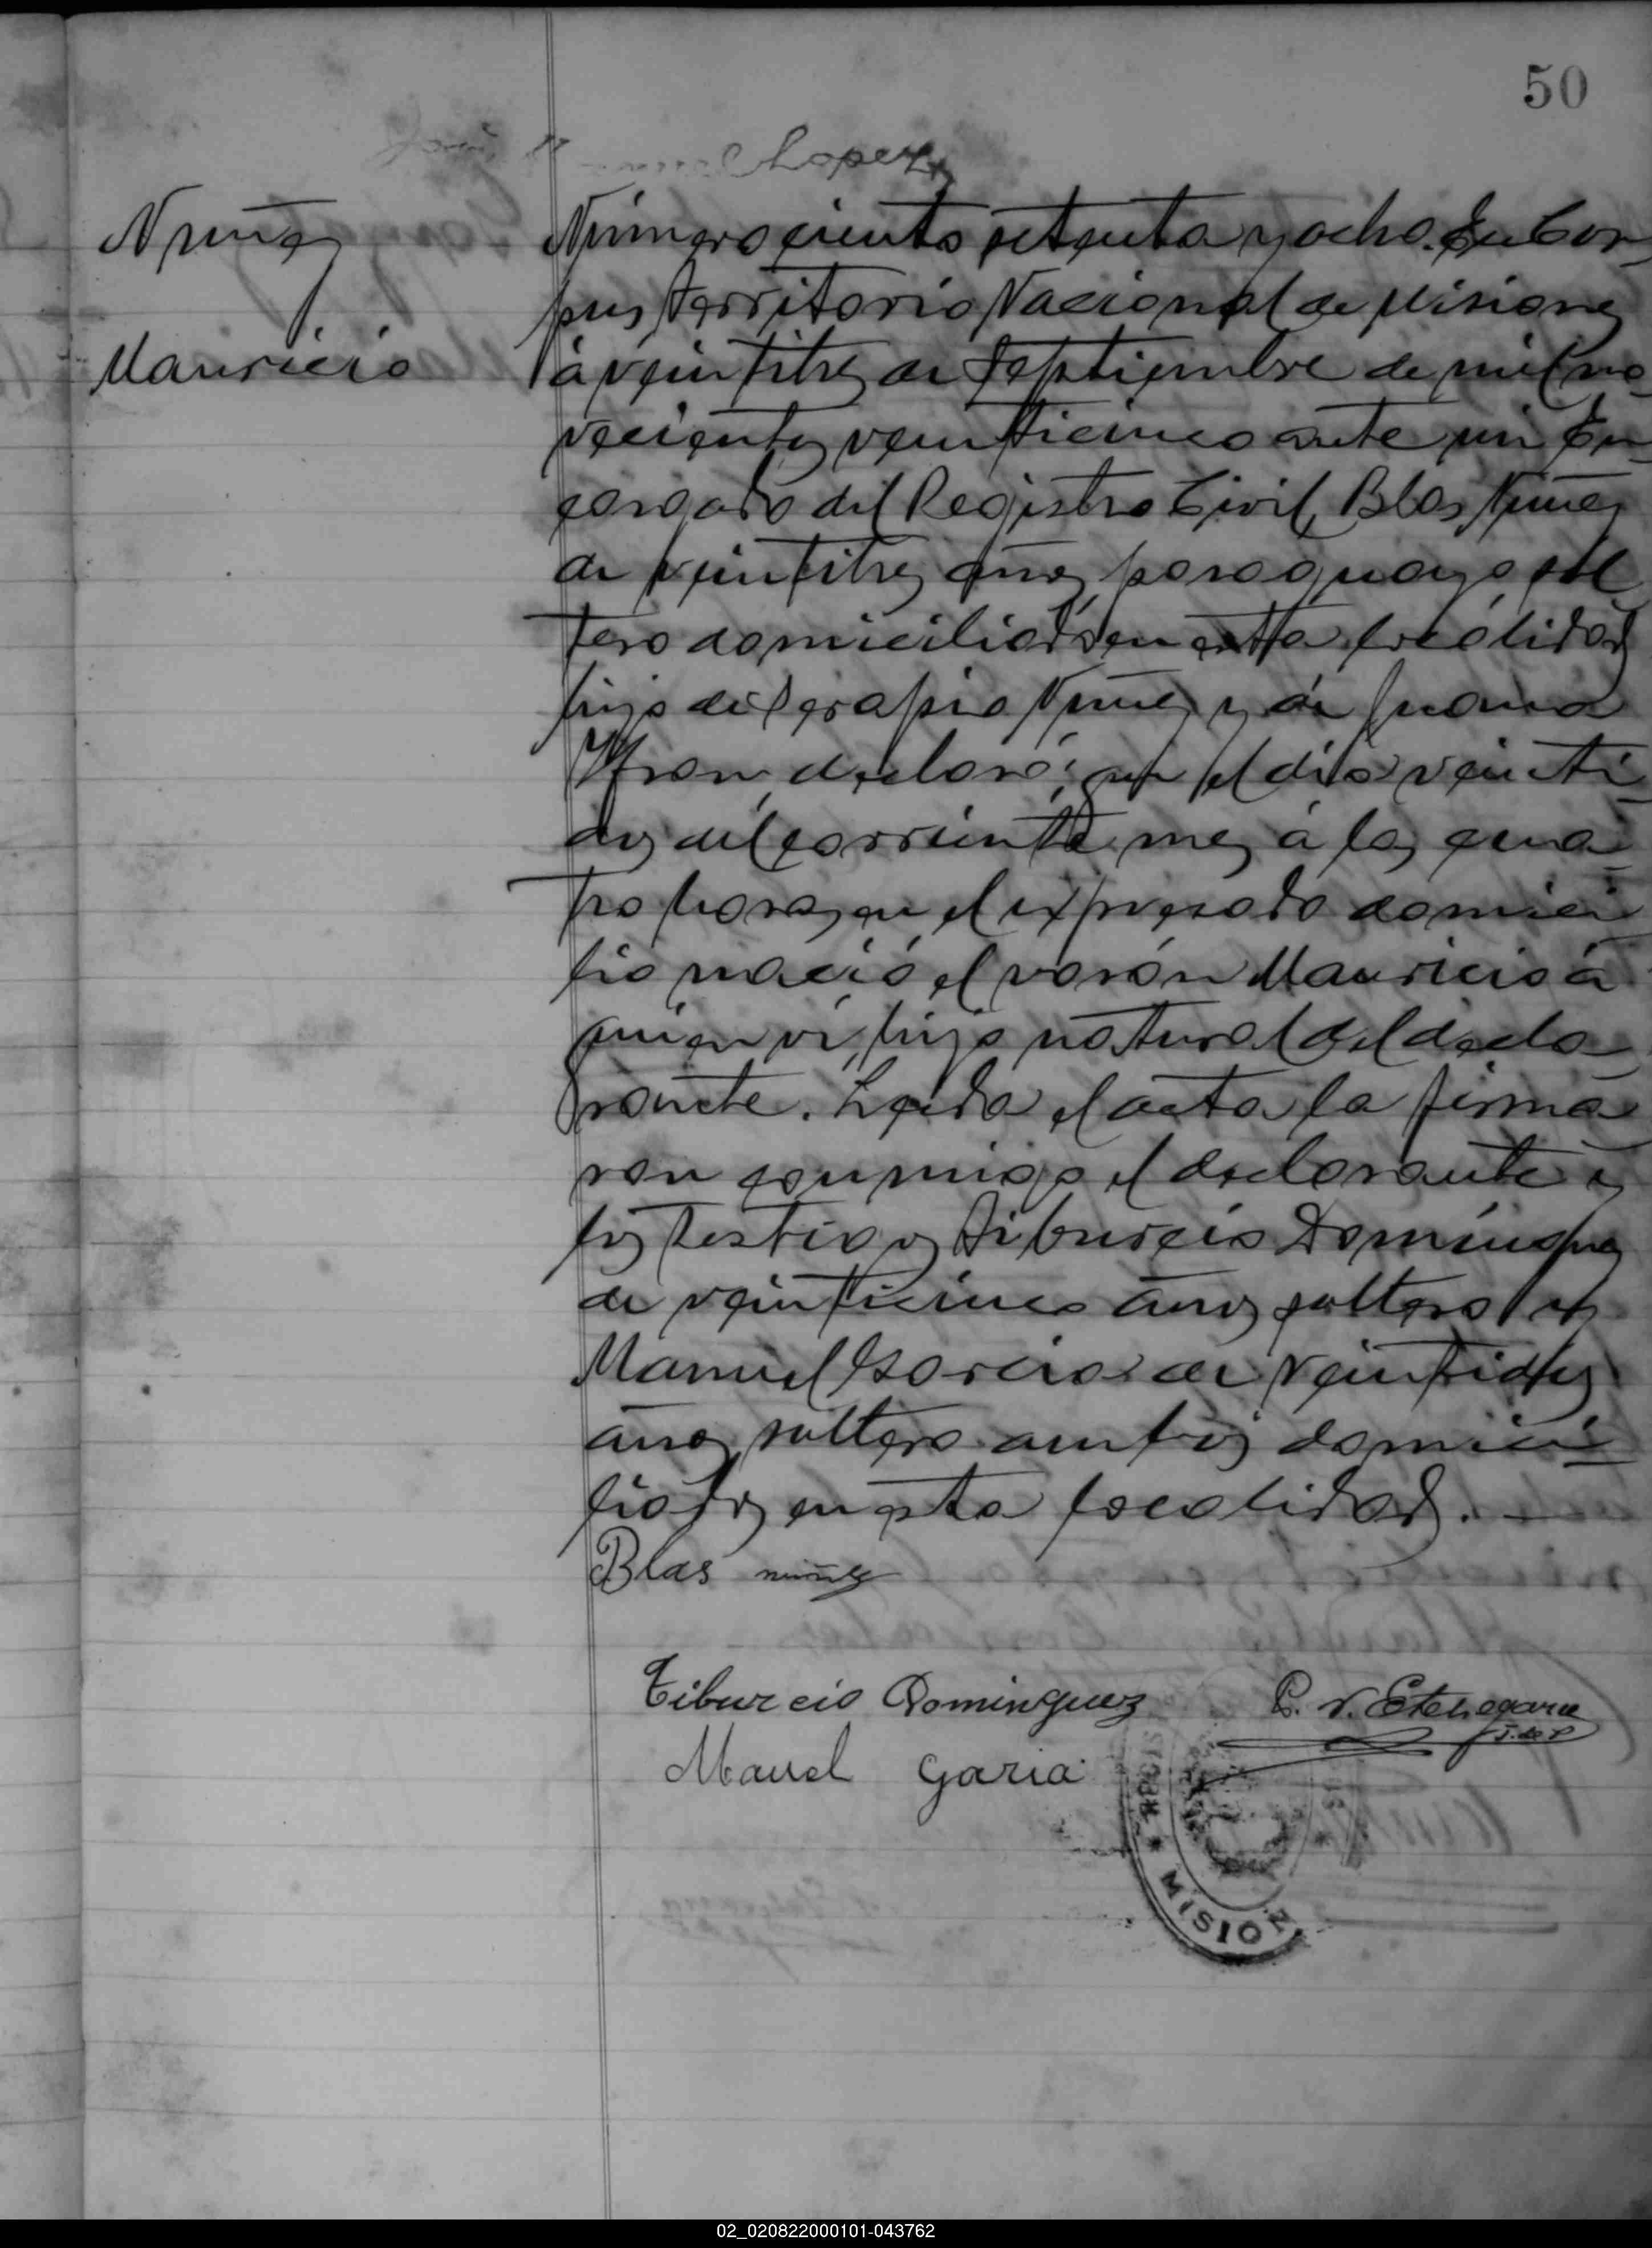 50
Lopez
Nuñez
Mauricio
Número ciento setenta y ocho. En Cor-
pus, Territorio Nacional de Misiones
á veintitres de Septiembre de mil no-
vecientos veinticinco ante mi En-
cargado del Registro Civil, Blas Nuñez
de veintitres años, paraguayo, sol-
tero domiciliado en esta localidad
hijo de Serapio Nuñez y de Juana
declaró: que el día veinti-
dos del corriente mes á las cua-
tro horas, en el expresado domici-
lio nació el varón Mauricio á
quien ví, hijo natural del decla-
rante. Leida el acta la firma-
ron conmigo el declarante y
los testigos Tiburcio Domínguez
de veinticinco años soltero y
Manuel Garcia de veintidos
años, soltero ambos domici-
liados en esta localidad.
Blas nuñez
Tiburcio Dominguez
P. V. Etchegaray
J. de P
Manuel Garcia
MISION
02_020822000101-043762